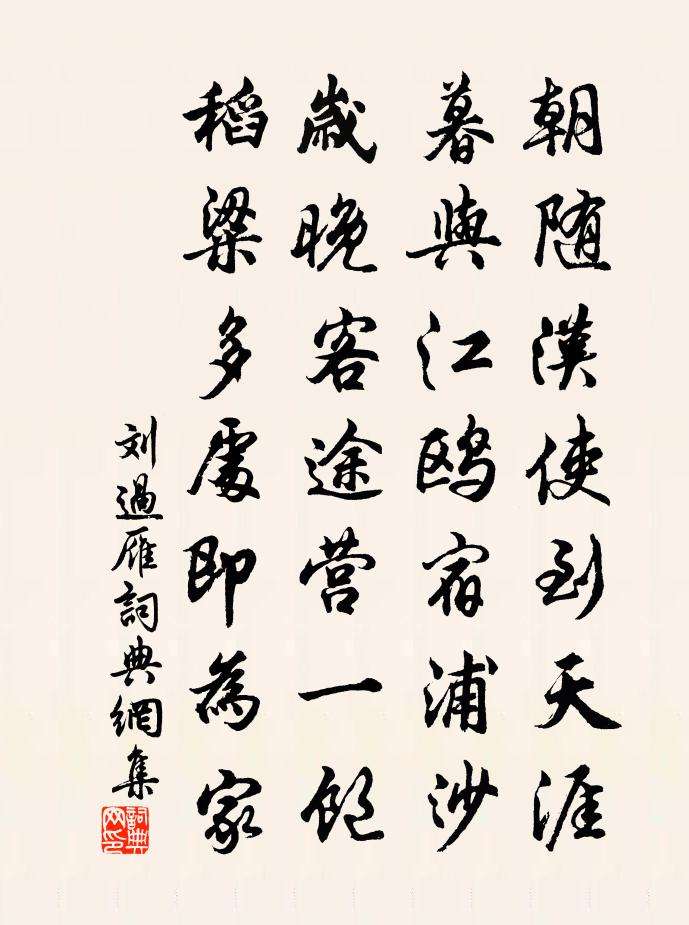 朝随漢使到天涯
暮與江鸥宿浦沙
歲晚客途营一飽
稻粱多處即為家
刘過雁詞典網集
詞典
网印